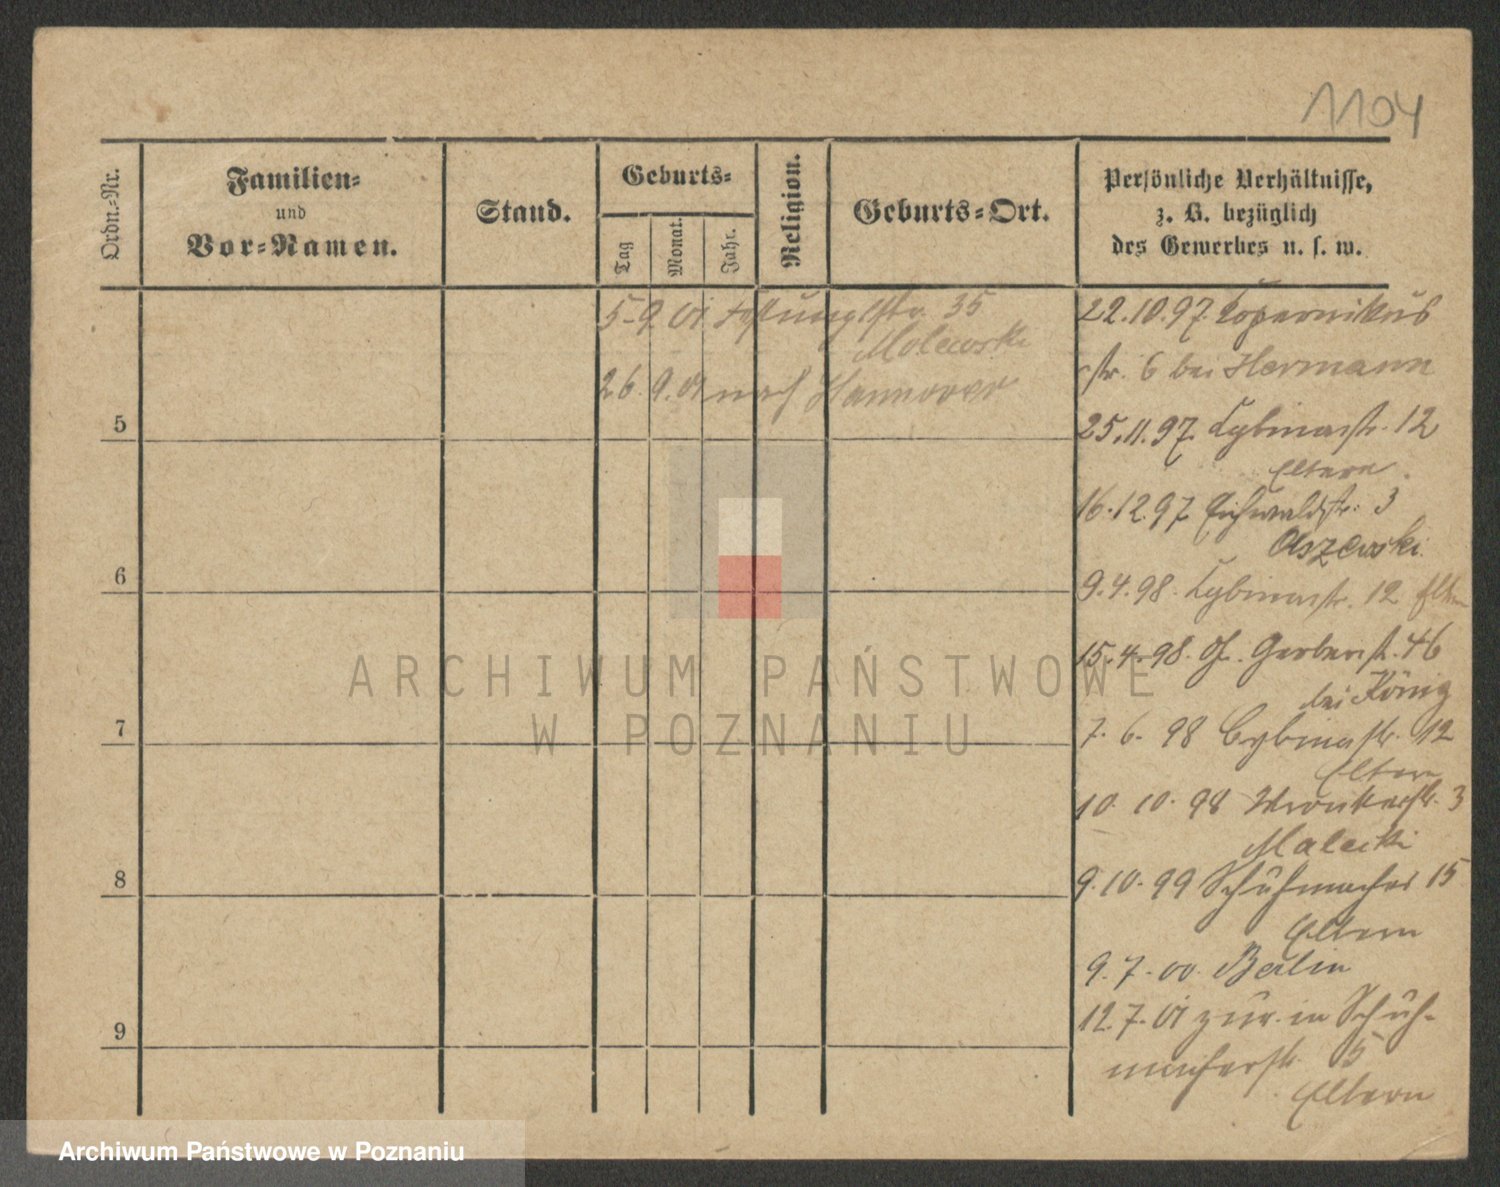 1104
Ordn.-Nr.
Familien-
und
Vor-Namen.
Stand.
Geburts-
Tag
Monat.
Jahr.
Religion.
Geburts-Ort.
Persönliche Verhältnisse,
z. B. bezüglich
des Gewerbes u. s. w.
5-9.01 Festungsstr. 35
Molewski
26.9.01 nach Hannover
22.10.97. Kopernikus
str. 6 bei Hermann
25.11.97. Cybinastr. 12
Eltern
16.12.97 Eichwaldstr. 3
Olszewski
9.4.98. Cybinastr. 12 Eltern
15.4.98. Gr. Gerberstr. 46
bei König
7. 6. 98 Cybinastr. 12
Eltern
10. 10. 98 Wronkerstr. 3
Malecki
9.10.99 Schuhmacher 15
Eltern
9.7.00. Berlin
12.7.01 zur. in Schuh-
macherstr. 15
Eltern
5
6
7
8
9
ARCHIWUM PAŃSTWOWE
W POZNANIU
Archiwum Państwowe w Poznaniu